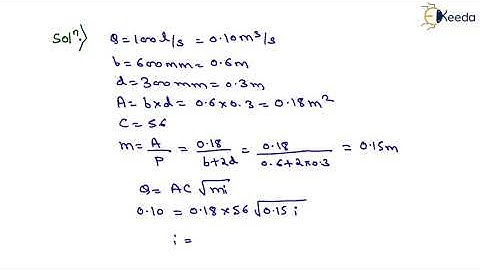 Ekeeda
Solⁿ:) Q = 100 l/s = 0.10 m³/s
b = 600 mm = 0.6 m
d = 300 mm = 0.3 m
A = b x d = 0.6 x 0.3 = 0.18 m²
C = 56
m = A/P = 0.18/(b+2d) = 0.18/(0.6+2x0.3) = 0.15m
Q = AC √mi
0.10 = 0.18 x 56 √0.15 i
i =